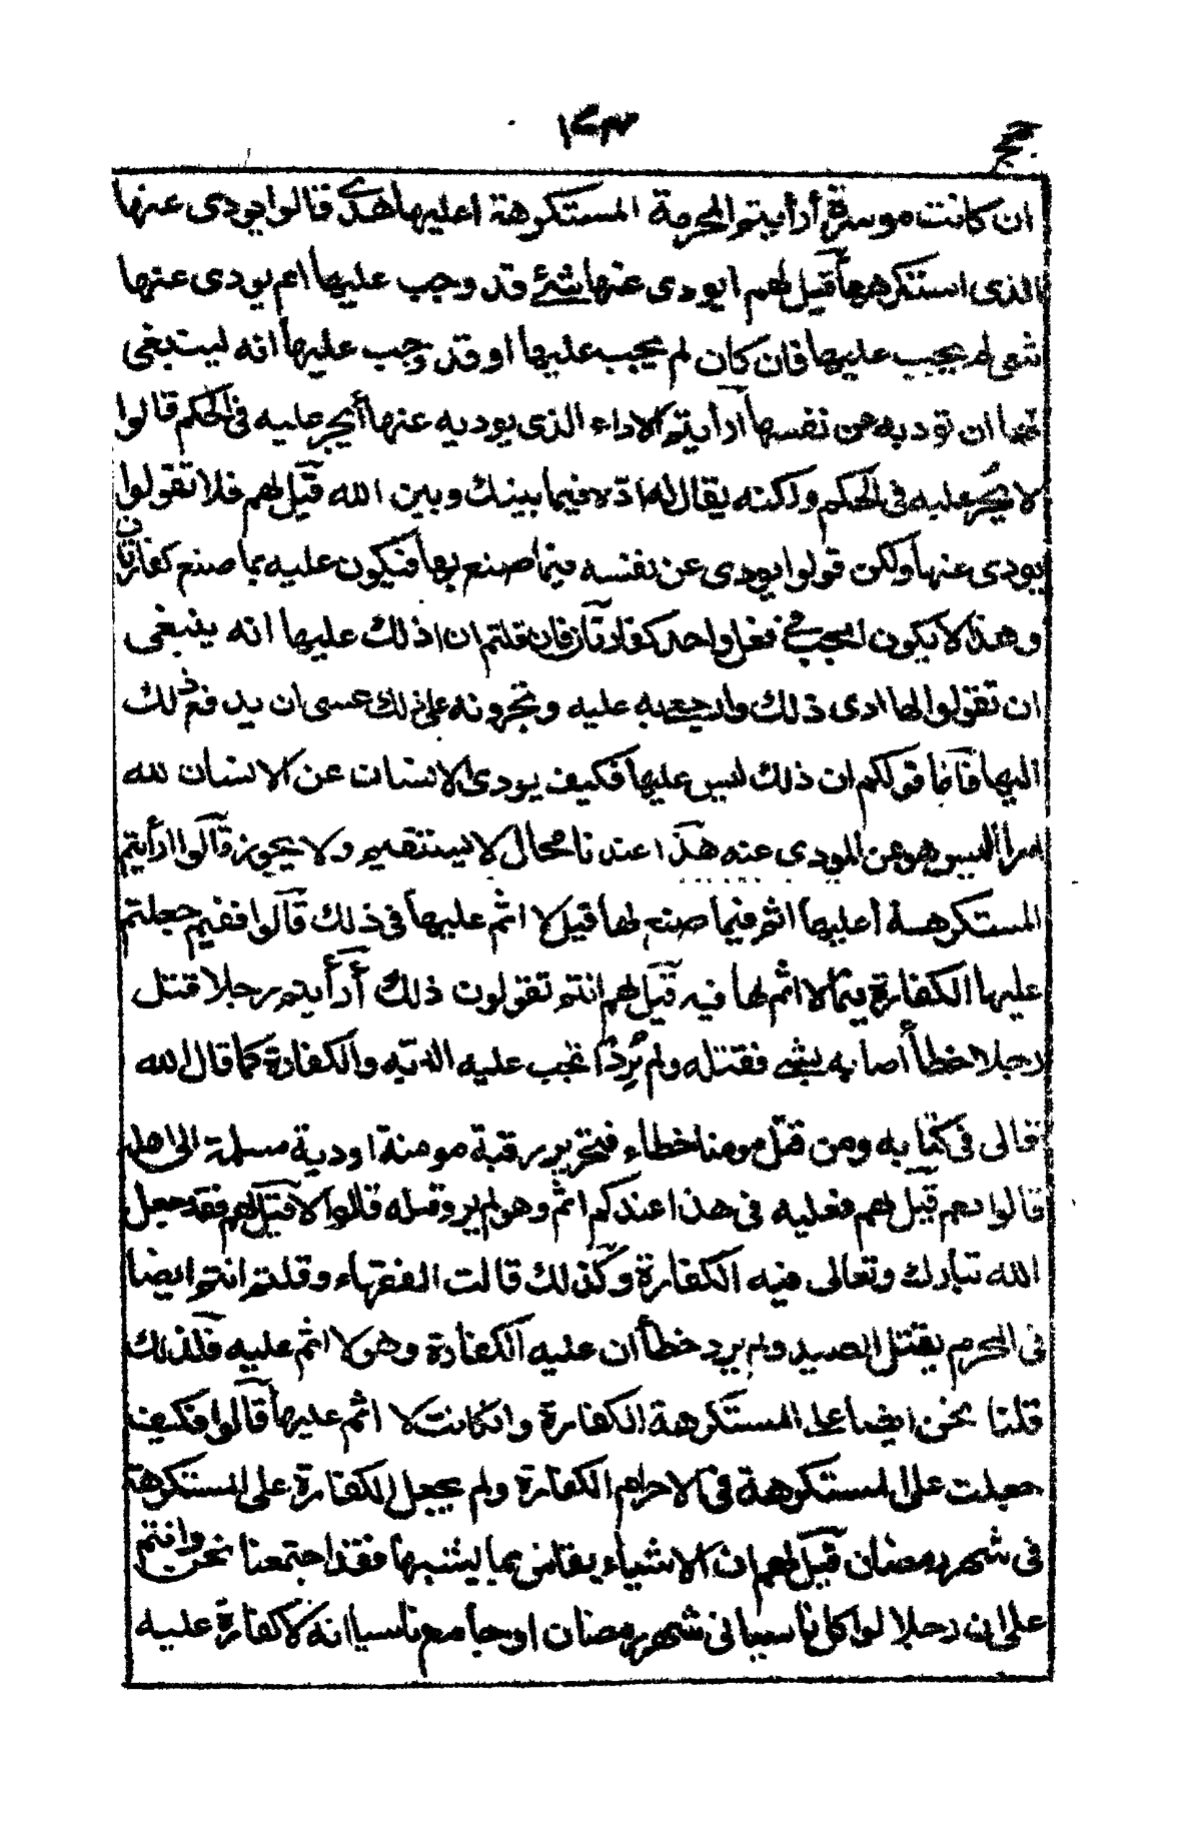 حج
ان كانت موسرة أرأيتم المحرمة المستكرهة أعليها هدى قالوا يودى عنها
الذى استكرهها قيل لهم ايودى عنها شئ قد وجب عليها ام يودى عنها
شئ لم يجب عليها فان كان لم يجب عليها او قد وجب عليها انه ليتبغى
لها ان توديه عن نفسها أرأيتم الاداء الذى يوديه عنها أيجبر عليه فى الحكم قالوا
لا يجبر عليه فى الحكم ولكنه يقال له اده فيما بينك وبين الله قيل لهم فلا تقولوا
يودى عنها ولكن قولوا يودى عن نفسه فيما صنع بها فيكون عليه بما صنع كفارتان
وهذا لا يكون ايجب فى فعل واحد كفارتان فان قلتم ان ذلك عليها انه ينبغى
ان تقولوا لها ادى ذلك وارجعى به عليه وتجبرونه على ذلك عسى ان يدفع ذلك
اليها فاما قولكم ان ذلك ليس عليها فكيف يودى الانسان عن الانسان لله
امرا أليس هو عن المودى عنه هذا عندنا محال لا يستقيم ولا يجوز قالوا ارأيتم
المستكرهة أعليها اثم فيما صنع لها قيل لا اثم عليها فى ذلك قالوا ففيم جعلتم
عليها الكفارة فيما لا اثم لها فيه قيل لهم انتم تقولون ذلك أرأيتم رجلا قتل
رجلا خطأ أصابه بشئ فقتله ولم يُرِد ذا تجب عليه الدية والكفارة كما قال الله
تعالى فى كتابه ومن قتل مومنا خطاء فتحرير رقبة مومنة او دية مسلمة الى اهله
قالوا نعم قيل لهم فعليه فى هذا عندكم اثم وهو لم يرد قتله قالوا لا قيل لهم فقد جعل
الله تبارك وتعالى فيه الكفارة وكذلك قالت الفقهاء وقلتم انتم ايضا
فى المحرم يقتل الصيد ولم يرد خطأ ان عليه الكفارة وهو لا اثم عليه فلذلك
قلنا نحن ايضا على المستكرهة الكفارة وان كانت لا اثم عليها قالوا فكيف
جعلت على المستكرهة فى الاحرام الكفارة ولم يجعل الكفارة على المستكرهة
فى شهر رمضان قيل لهم ان الاشياء يقاس بما يشبهها فقد اجتمعنا نحن وانتم
على ان رجلا لو اكل ناسيا فى شهر رمضان او جامع ناسيا انه لا كفارة عليه